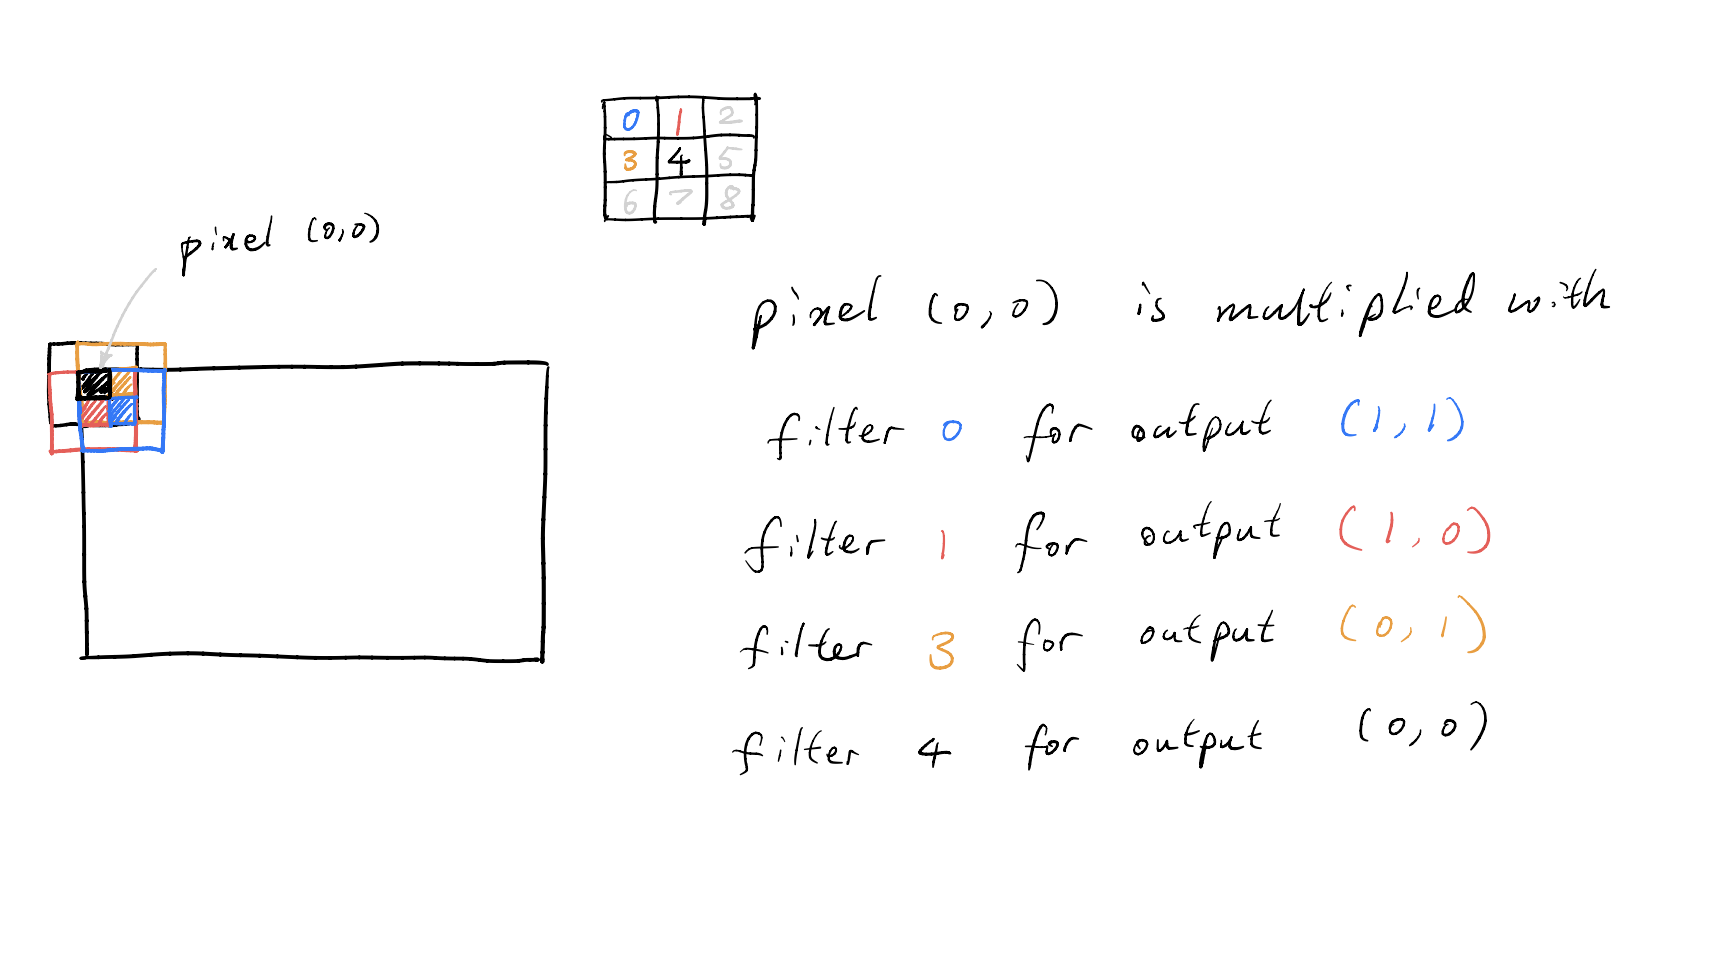 0 1 2
3 4 5
6 7 8
pixel (0,0)
pixel (0,0) is multiplied with
filter 0 for output (1,1)
filter 1 for output (1,0)
filter 3 for output (0,1)
filter 4 for output (0,0)